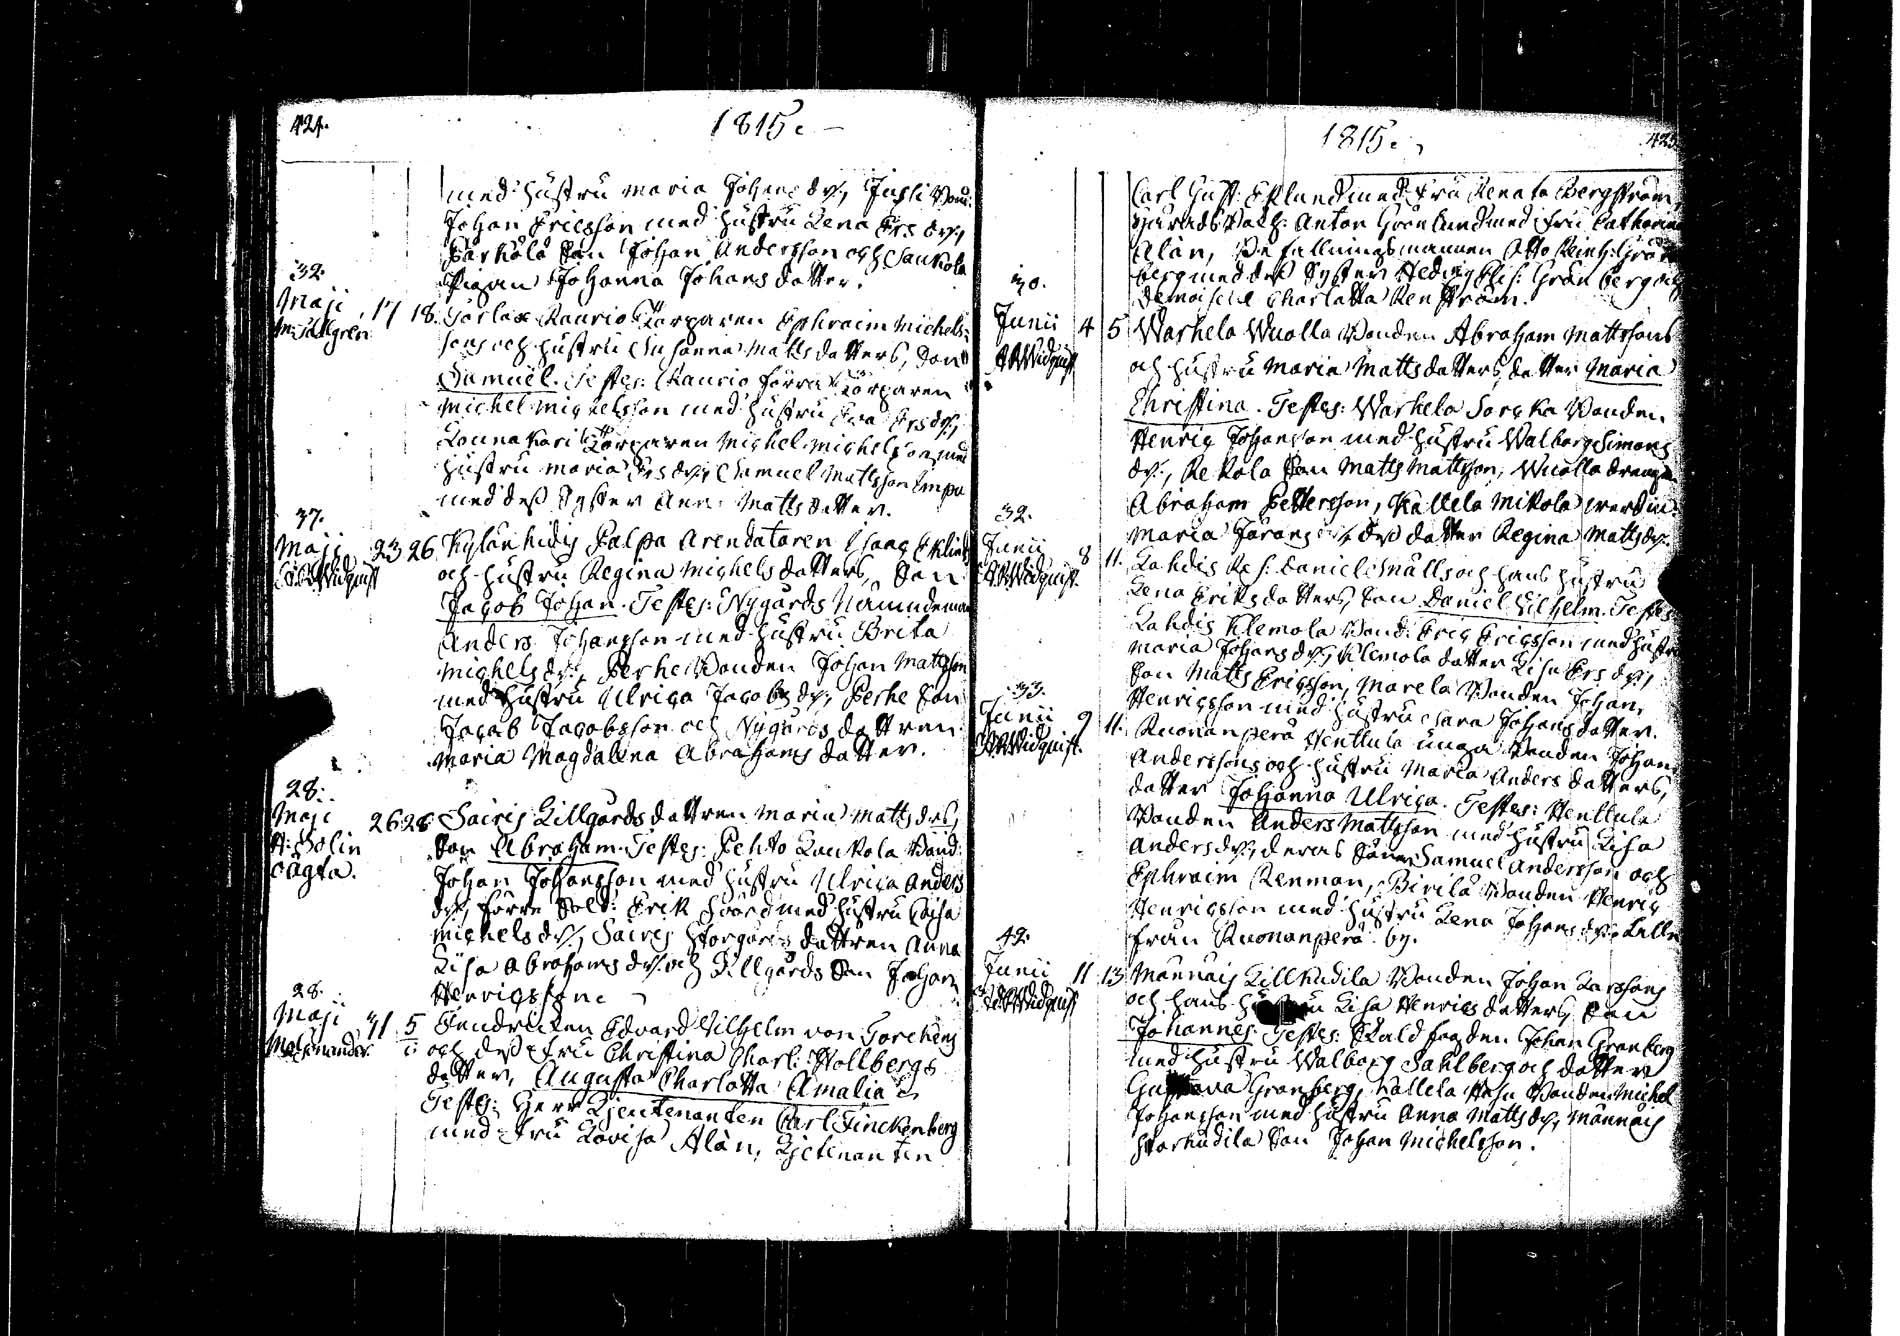 424.
1815.
med hustru Maria Johans dr.,
Johan Ericsson med hustru Lena Ers dr.,
Pärkölä Son Johan Andersson och Laukola
Pigan Johanna Johans dotter.
32.
Maji 17 18. Kaurio Torparen Ephraim Michels-
sons och hustru Susanna Matts dotters, Son
Samuel. Testes: Kaurio förra Torparen
Michel Michelsson med hustru Eva Ers dr.,
Torparen Michel Michelsson med
hustru Maria Ers dr., Samuel Mattsson
med dess Syster Ann Matts dotter.
37.
Maji 23 26. Palpa Arendatoren Isaac Eklunds
Widquist
och hustru Regina Michels dotters, Son
Jacob Johan. Testes: Nygårds Nämndeman
Anders Johansson med hustru Brita
Michels dr., Perhe Bonden Johan Mattsson
med hustru Ulrica Jacobs dr., Perhe Son
Jacob Jacobsson och Nygårds dottren
Maria Magdalena Abrahams dotter.
28.
Maji 26 28 Sairis Lillgårds dottren Maria Matts drs,
oägta.
Son Abraham. Testes: Pehto Laukola Bond:
Johan Johansson med hustru Ulrica Anders
dr., förre Sold: Erik Svärd med hustru Lisa
Michels dr., Sairis Storgårds dottren Anna
Lisa Abrahams dr. och Lillgårds Son Johan
Henricsson.
28.
Maji 31 5 Fendricken Edvard Vilhelm von
och dess Fru Christina Charl: Hollbergs
dotter, Augusta Charlotta Amalia.
Testes: Herr Lieutenanten Carl Finckenberg
med Fru Lovisa Alán, Lieutenanten
1815.
425
Carl Gust: Eklund med Fru Renata Bergström,
Anton Grönlund med Fru Catharina
Alán, Befallningsmannen Otto Reinh: Grön
berg med dess Syster Hedvig Elis: Grönberg och
Demoiselle Charlotta Renström.
30.
Junii 4 5 Warhela Wuolla Bonden Abraham Mattssons
Widquist
och hustru Maria Matts dotters, dotter Maria
Christina. Testes: Warhela Sorcka Bonden
Henric Johansson med hustru Walborg Simons
dr., Rekola Son Matts Mattsson, Wuolla drengen
Abraham Pettersson, Kallela Mikola
Maria dess dotter Regina Matts dr.
32.
Junii 8 11. Lahdis Daniel Smälls och hans hustru
Widquist.
Lena Eriks dotters, Son Daniel Vilhelm. Testes:
Lahdis Klemola Bond: Eric Ericsson med hustru
Maria Johans dr., Klemola dotter Lisa Ers dr.,
Son Matts Ericsson, Marela Bonden Johan
Henricsson med hustru Sara Johans dotter.
33.
Junii 9 11. Ruonanperä Henttula unga Bonden Johan
Widquist.
Anderssons och hustru Maria Anders dotters,
dotter Johanna Ulrica. Testes: Henttula
Bonden Anders Mattsson med hustru Lisa
Anders dr., deras Söner Samuel Andersson och
Ephraim Renman, Birilä Bonden Henric
Henricsson med hustru Lena Johans dr.
från Ruonanperä by.
42.
Junii 11 13 Männäis Lillkudila Bonden Johan Larssons
Widquist
och hans hustru Lisa Henrics dotters, Son
Johannes. Testes: Johan Granberg
med hustru Walborg Sahlberg och dotter
Gustava Granberg, Kallela Bonden Michel
Johansson med hustru Anna Matts dr., Männäis
Storkudila Son Johan Michelsson.